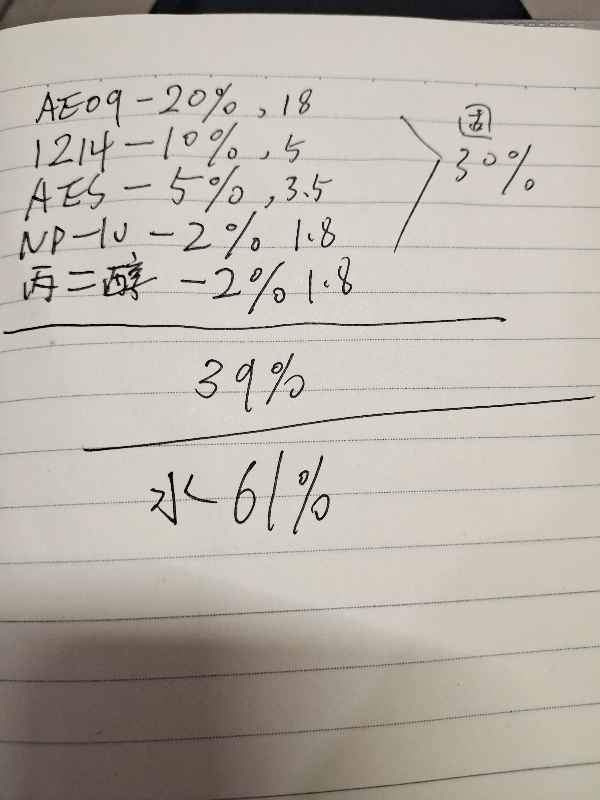 AEO9-20%,18
1214-10%,5
AES-5%,3.5
固
30%
NP-10-2% 1.8
丙二醇-2% 1.8
39%
水 61%